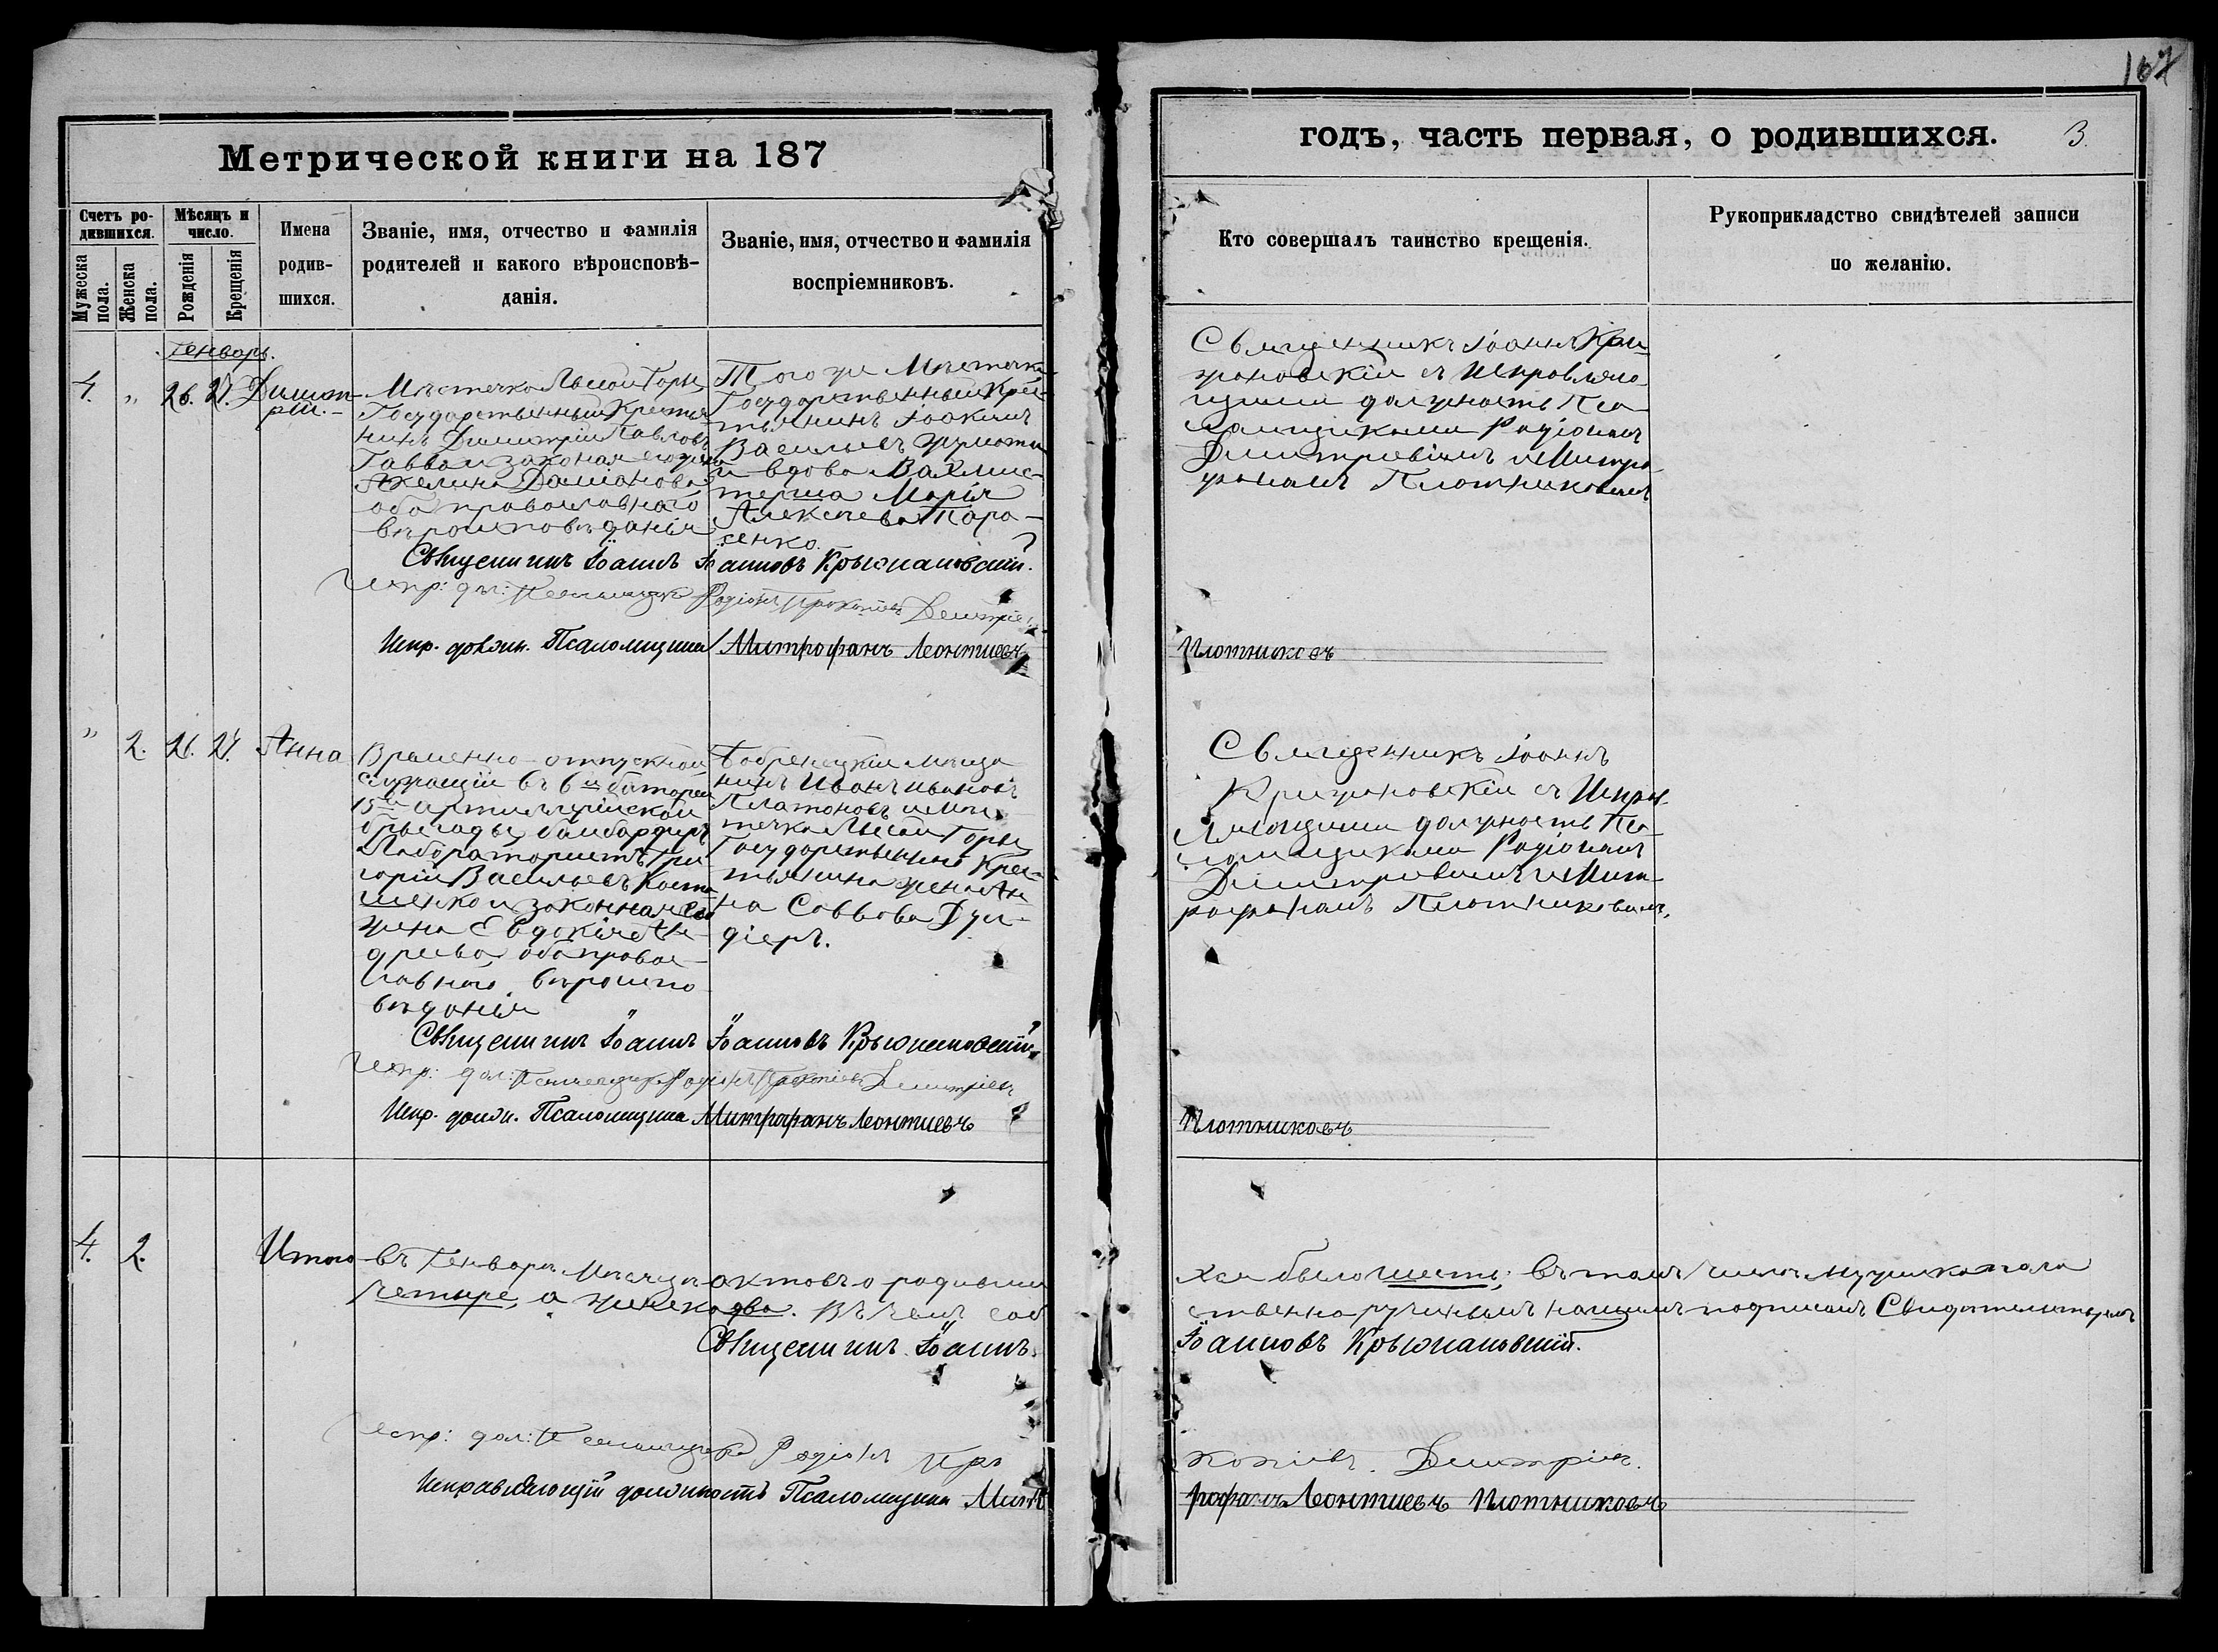 167
Метрической книги на 187
годъ, часть первая, о родившихся.
3.
Счетъ ро-
дившихся.
Мужеска
пола.
Женска
пола.
Мѣсяцъ и
число.
Рожденія
Крещенія
Имена
родив-
шихся.
Званіе, имя, отчество и фамилія
родителей и какого вѣроисповѣ-
данія.
Званіе, имя, отчество и фамилія
воспріемниковъ.
Кто совершалъ таинство крещенія.
Рукоприкладство свидѣтелей записи
по желанію.
Генварь.
4.
"
26.
27.
Димит-
рій.
Мѣстечка Лысой Горы
Государственный Крестья
нинъ Димитрій Павловъ
Савва и законная его жена
Акелина Даміанова
оба православнаго
вѣроисповѣданія
Того же Мѣстечка
Государственный Крес-
тьянинъ Іоакимъ
Васильевъ
и вдова Вахмис-
терша Марія
Алексѣева Пара-
сенко.
Священникъ Іоаннъ Кри-
жановскій съ Исправляю-
щими должность Пса-
ломщиками Родіономъ
Димитріевымъ и Митро-
фаномъ Плотниковымъ
Священникъ Іоаннъ Іоанновъ Крыжановскій.
Испр: дол: Псаломщика Родіонъ Прокопіевъ Димитріевъ
Испр. должн. Псаломщика Митрофанъ Леонтиевъ
Плотниковъ
"
2.
26.
27.
Анна
Временно-отпускной
служащій въ 6й баттареи
15й артиллерійской
бригады, бамбардиръ
Лаботаристъ Гри
горій Васильевъ Коста
шенко и законная его
жена Евдокія Ан-
дреева оба правос-
лавнаго вѣроиспо
вѣданія
Бобренецкій мѣща
нинъ Иванъ Ивановъ
Платоновъ и Мѣс-
течка Лысой Горы
Государственнаго Крес-
тьянина жена Ан
на Саввова Дуи-
діеръ.
Священникъ Іоаннъ
Крижановскій съ Исправ-
ляющими должность Пса-
ломщиками Родіономъ
Димитріевымъ и Мит-
рофаномъ Плотниковымъ.
Священникъ Іоаннъ Іоанновъ Крыжановскій.
Испр: дол: Псаломщика Родіонъ Прокопіевъ Димитріевъ
Испр. должн. Псаломщика Митрофанъ Леонтиевъ
Плотниковъ
4.
2.
Итого въ Генварѣ Мѣсяцѣ актовъ о родивши
хся было шесть; въ томъ числѣ мужеска пола
четыре, а женска два. Въ чемъ соб
ственноручнымъ нашимъ подписомъ Свидетельствуемъ
Священникъ Іоаннъ
Іоанновъ Крыжановскій.
Испр: дол: Псаломщика Родіонъ Про
копіевъ. Димитріевъ.
Исправляющій должность Псаломщика Мит
рофанъ Леонтиевъ Плотниковъ